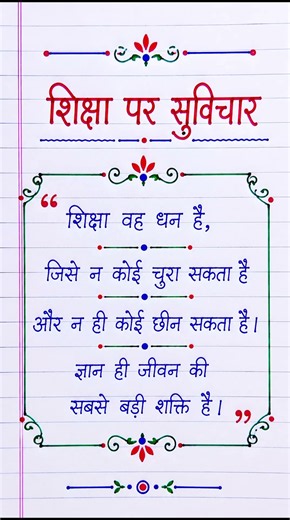 शिक्षा पर सुविचार
“शिक्षा वह धन है,
जिसे न कोई चुरा सकता है
और न ही कोई छीन सकता है।
ज्ञान ही जीवन की
सबसे बड़ी शक्ति है।”